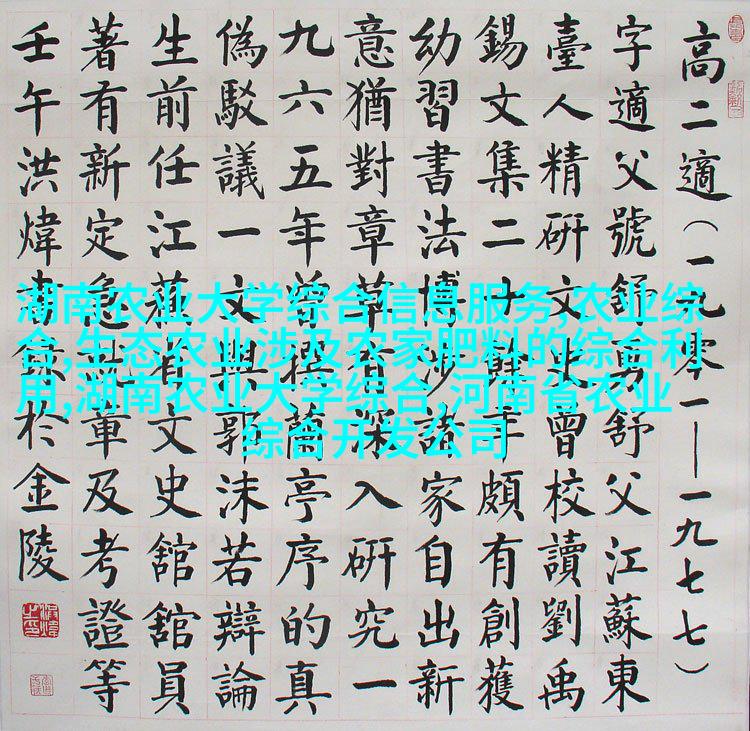 高二適（一九零一——一九七七）
字適父號舒勇舒父江蘇東
臺人精研文史曾校讀劉禹
錫文集二十餘年頗有創獲
幼習書法博涉諸家自出新
意猶對章草深入研究一
九六五年曾撰蘭亭序的真
偽駁議一文與郭沫若辯論
生前任江蘇省文史舘舘員
著有新定急就章及考證等
壬午洪煒書錄於金陵
湖南农业大学综合信息服务,农业综
合,生态农业,涉及农家肥料的综合利
用,湖南农业大学综合,河南省农业
综合开发公司